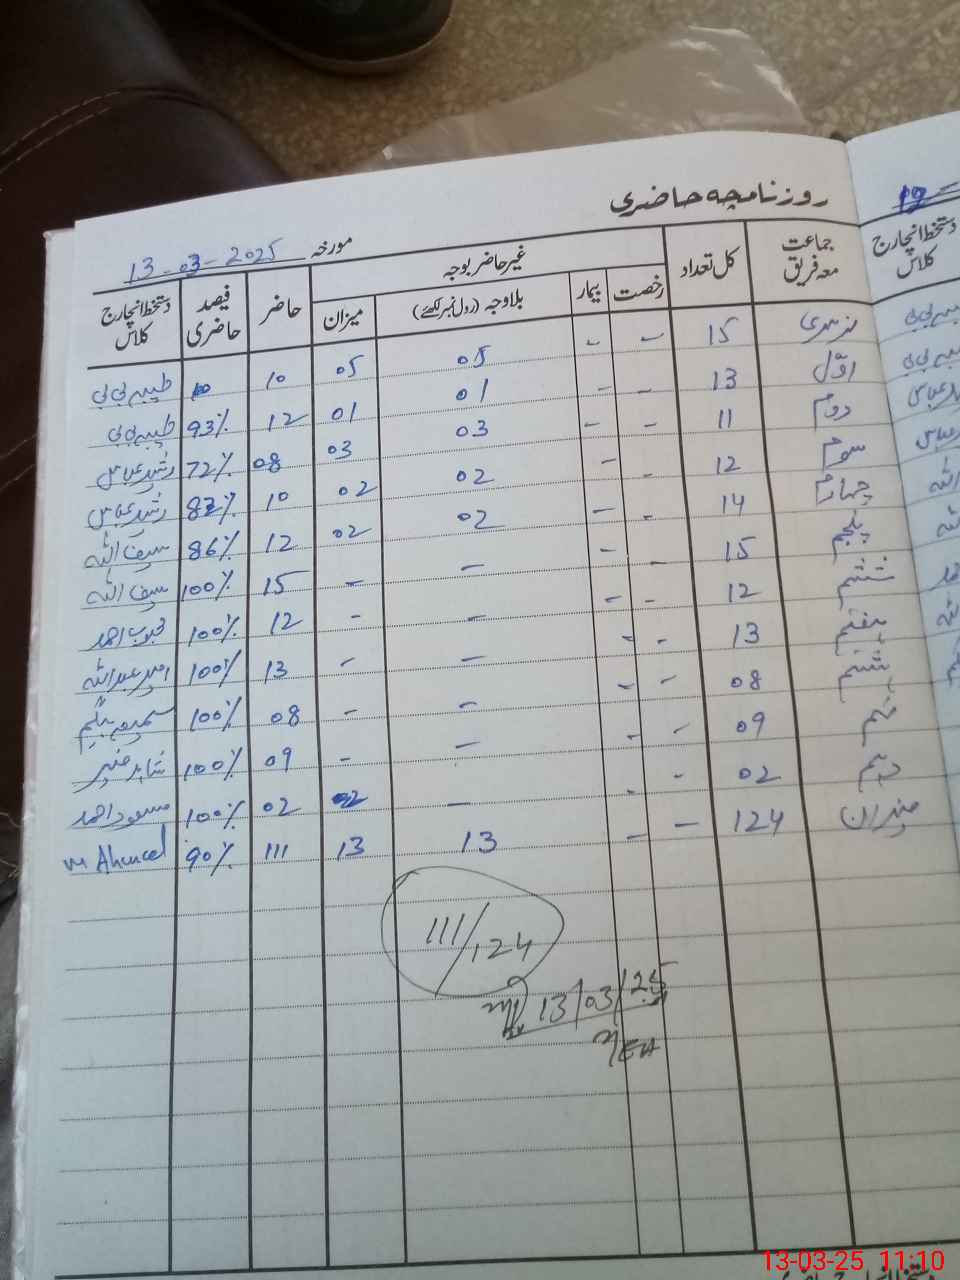 روزنامچہ حاضری
مورخہ 13-03-2025
جماعت معہ فریق کل تعداد غیر حاضر بوجہ حاضر فیصد حاضری دستخط انچارج کلاس
رخصت بیمار بلاوجہ (رول نمبر لکھئے) میزان
نرسری 15 - - 05 05 10 طیبہ بی بی
اوّل 13 - - 01 01 12 93% طیبہ بی بی
دوم 11 - - 03 03 08 72% رشید عباس
سوم 12 - - 02 02 10 82% رشید عباس
چہارم 14 - - 02 02 12 86% سیف اللہ
پنجم 15 - - - - 15 100% سیف اللہ
ششم 12 - - - - 12 100% محبوب احمد
ہفتم 13 - - - - 13 100% امیر عبداللہ
ہشتم 08 - - - - 08 100%
نہم 09 - - - - 09 100%
دہم 02 - - - 02 100% مسعود احمد
میزان 124 - - 13 13 111 90% M Ahmed
111/124
13/03/25
MEA
دستخط انچارج کلاس
13-03-25 11:10